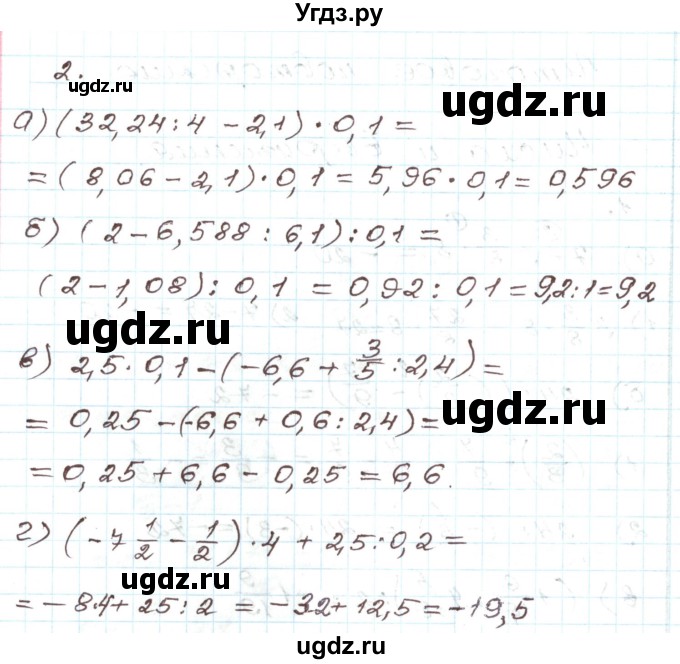 Угдз.ру
2.
ugdz.ru
ugdz.ru
а) (32,24 : 4 − 2,1) · 0,1 =
= (8,06 − 2,1) · 0,1 = 5,96 · 0,1 = 0,596
б) (2 − 6,588 : 6,1) : 0,1 =
(2 − 1,08) : 0,1 = 0,92 : 0,1 = 9,2 : 1 = 9,2
ugdz.ru
в) 2,5 · 0,1 − (−6,6 + 3/5 : 2,4) =
ugdz.ru
= 0,25 − (−6,6 + 0,6 : 2,4) =
= 0,25 + 6,6 − 0,25 = 6,6.
г) (−7 1/2 − 1/2) · 4 + 2,5 : 0,2 =
ugdz.ru
ugdz.ru
= −8·4 + 25 : 2 = −32 + 12,5 = −19,5
ugdz.ru